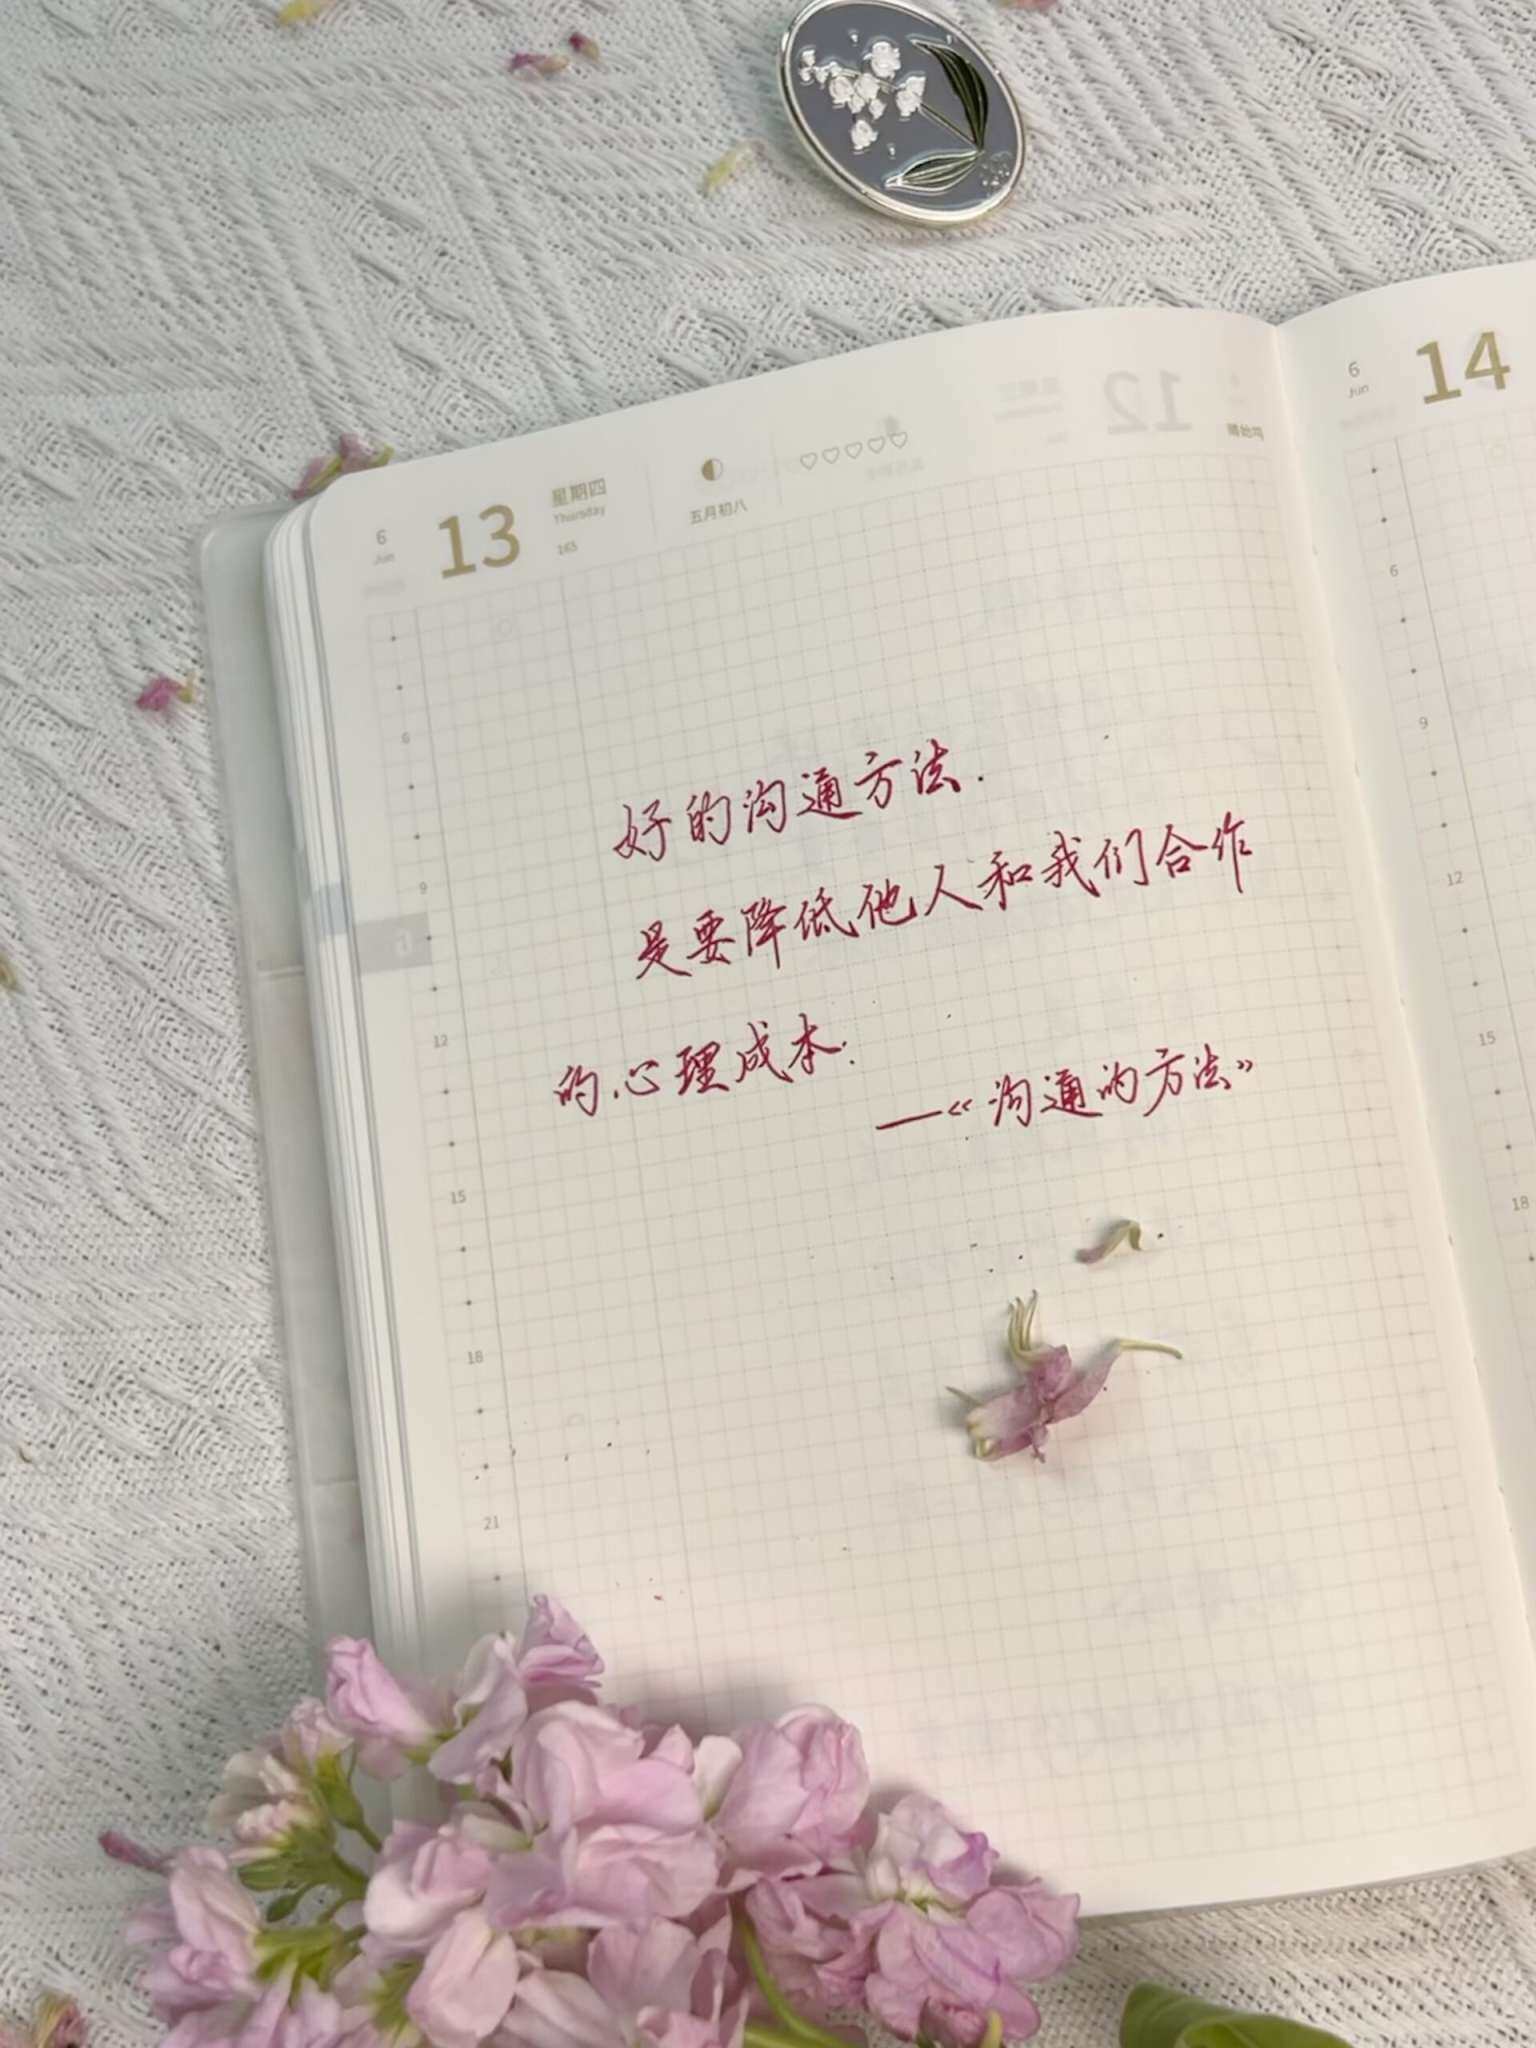 6
Jun
13
星期四
Thursday
165
五月初八
6
Jun
14
6
9
12
15
18
21
6
9
12
15
18
好的沟通方法.
是要降低他人和我们合作
的心理成本.
—《沟通的方法》